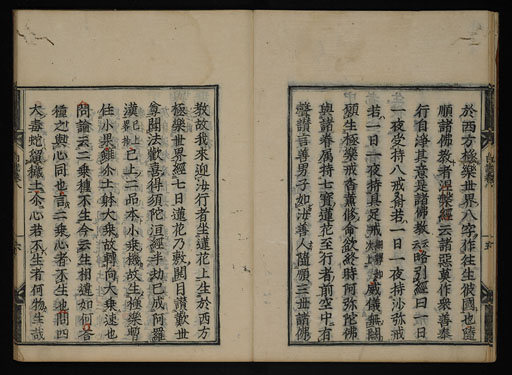 於西方極樂世界八字作往生彼國也隨
順諸佛教者涅槃經云諸惡莫作衆善奉
行自淨其意是諸佛教云云略引經曰一日
一夜受持八戒齋若一日一夜持沙弥戒
若一日一夜持具足戒 威儀無闕
願生極樂戒香薰修命欲終時阿弥陀佛
與諸眷属持七寶蓮花至行者前空中有
聲讃言善男子如汝善人隨順三世諸佛
教故我來迎汝行者坐蓮花上生於西方
極樂世界經七日蓮花乃敷開目讃歎世
尊聞法歡喜得須陀洹經半劫已成阿羅
漢 已上二品本小乗機故生極樂暫
住小果雖尒土對大乗故轉向大乗速也
問論云二乗種不生今云生相違如何答
種之與心同也言二乗心者不生也問四
大毒蛇 穢土尒心若不生者何物生哉